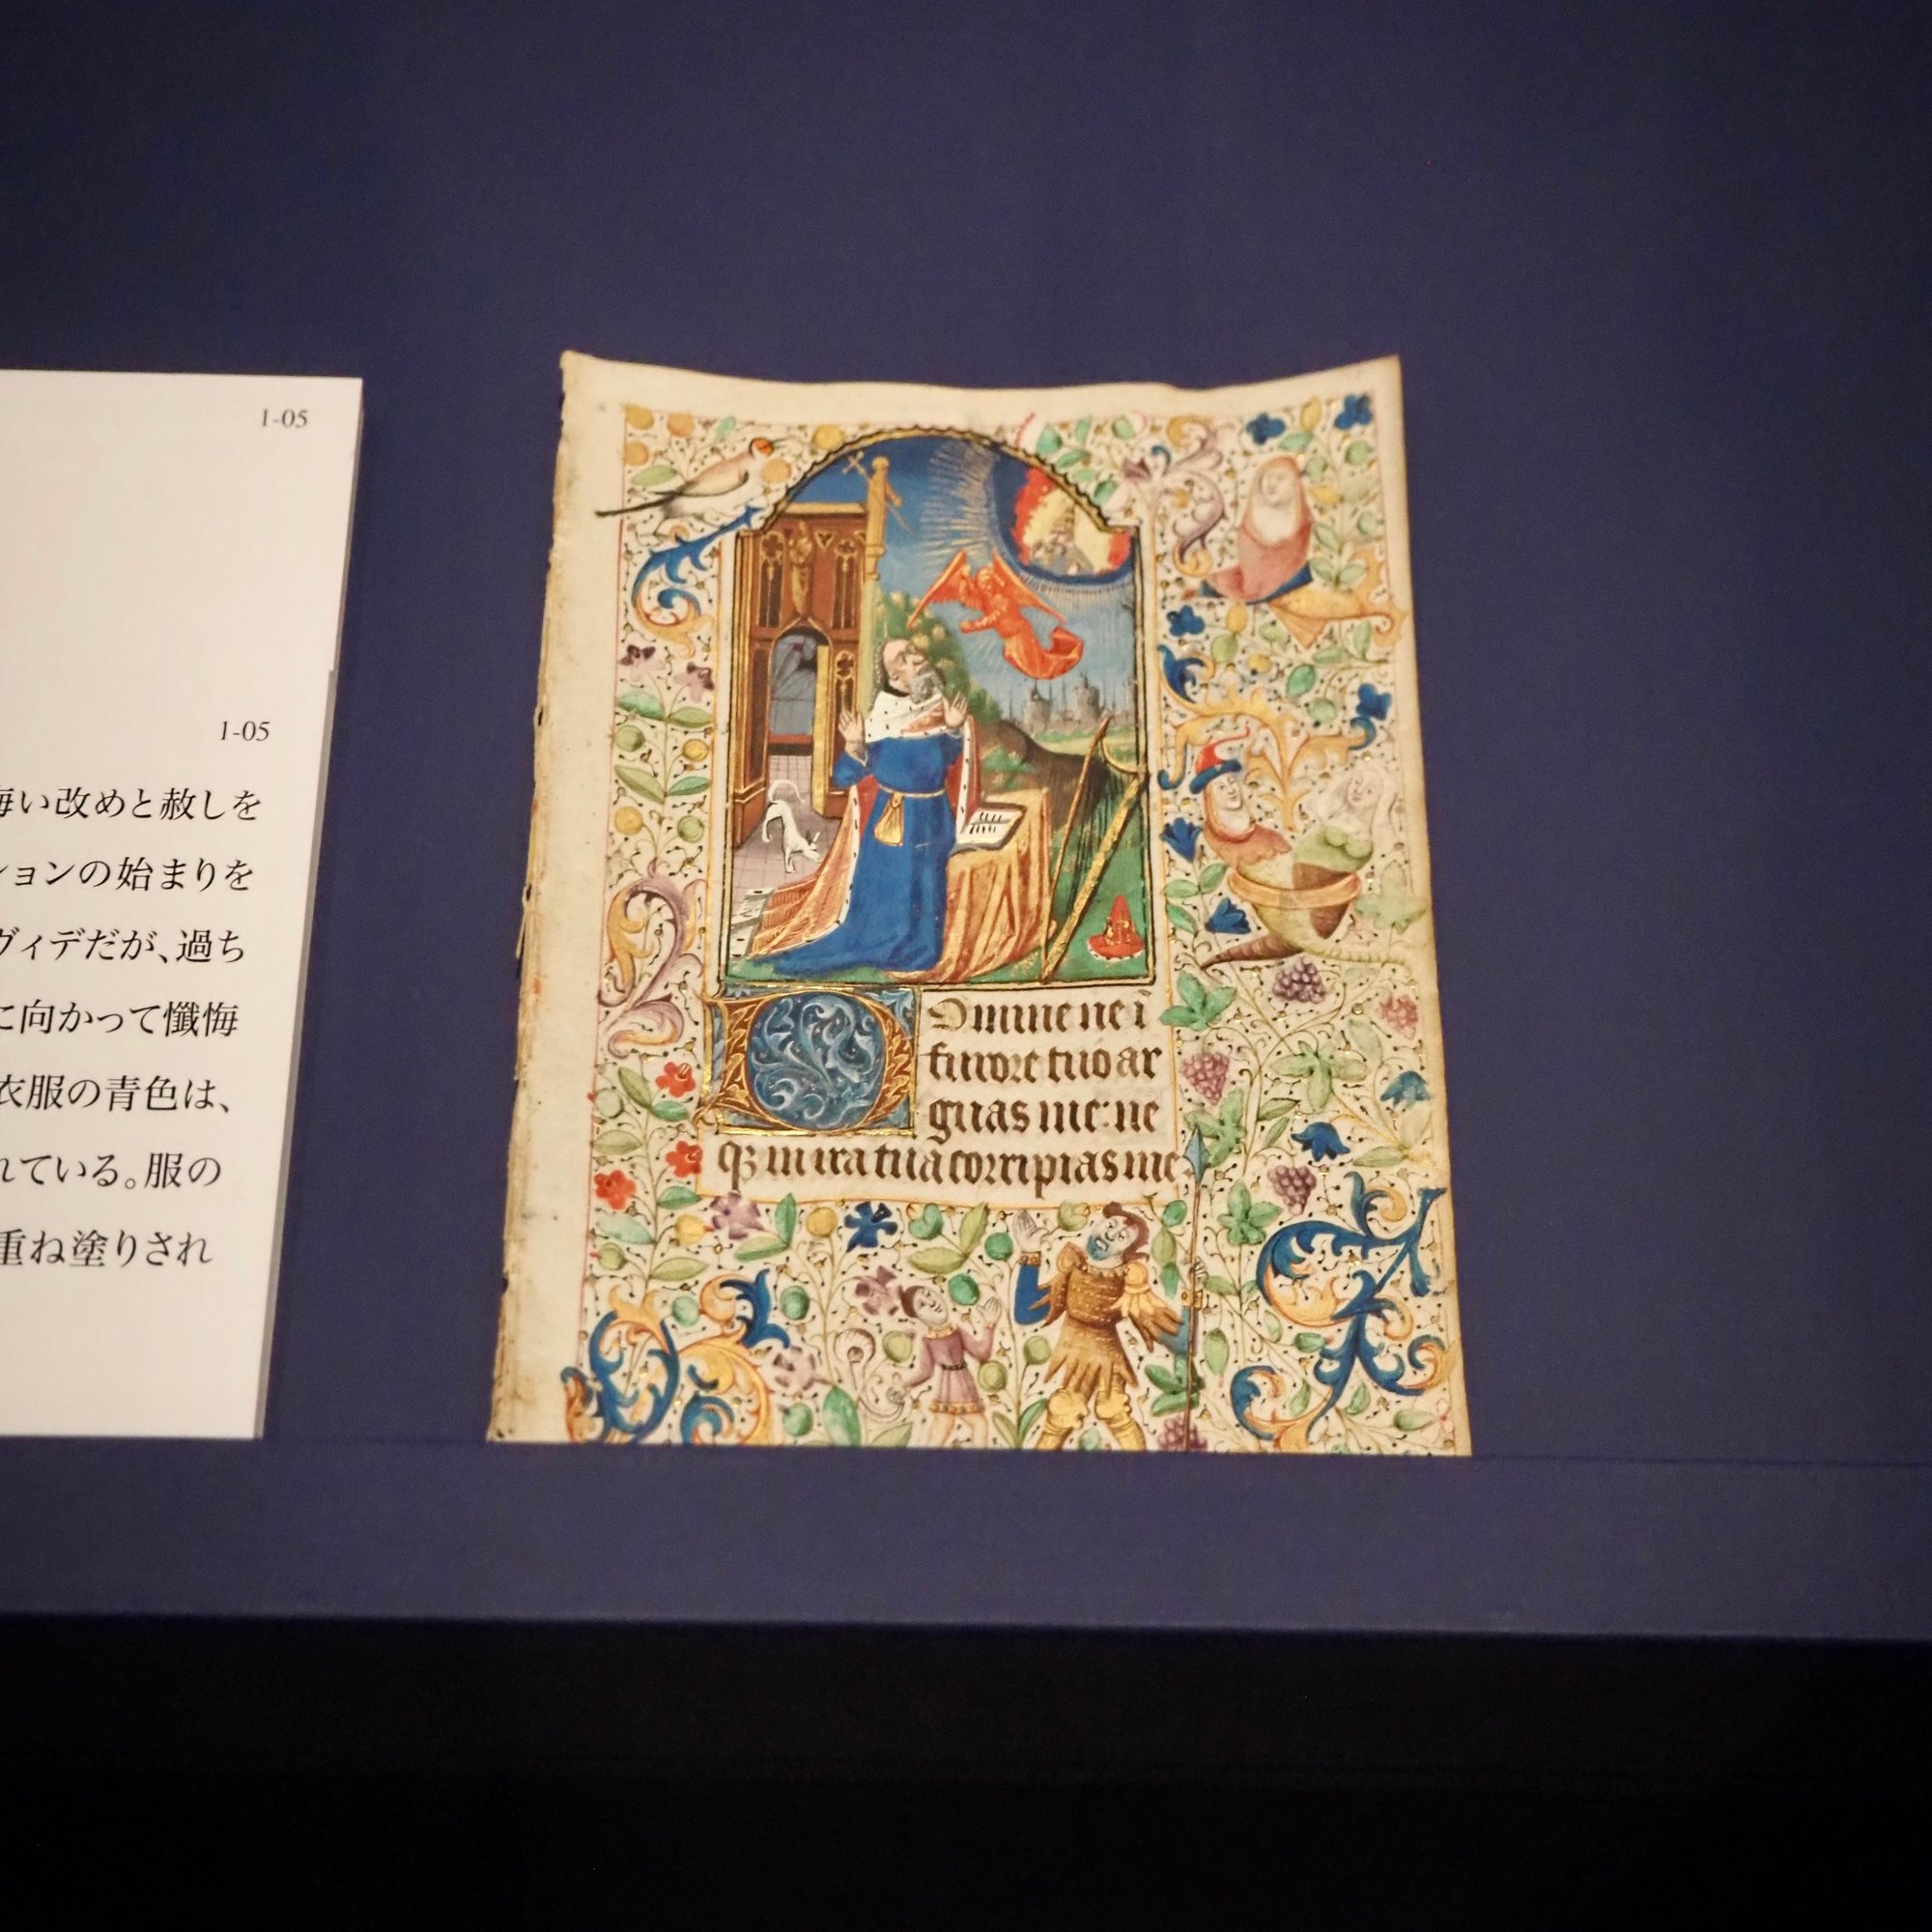 1-05
1-05
悔い改めと赦しを
ションの始まりを
ヴィデだが、過ち
に向かって懺悔
衣服の青色は、
れている。服の
重ね塗りされ
Domine ne ī
furore tuo ar
guas me: ne
qꝫ in ira tua corripias me